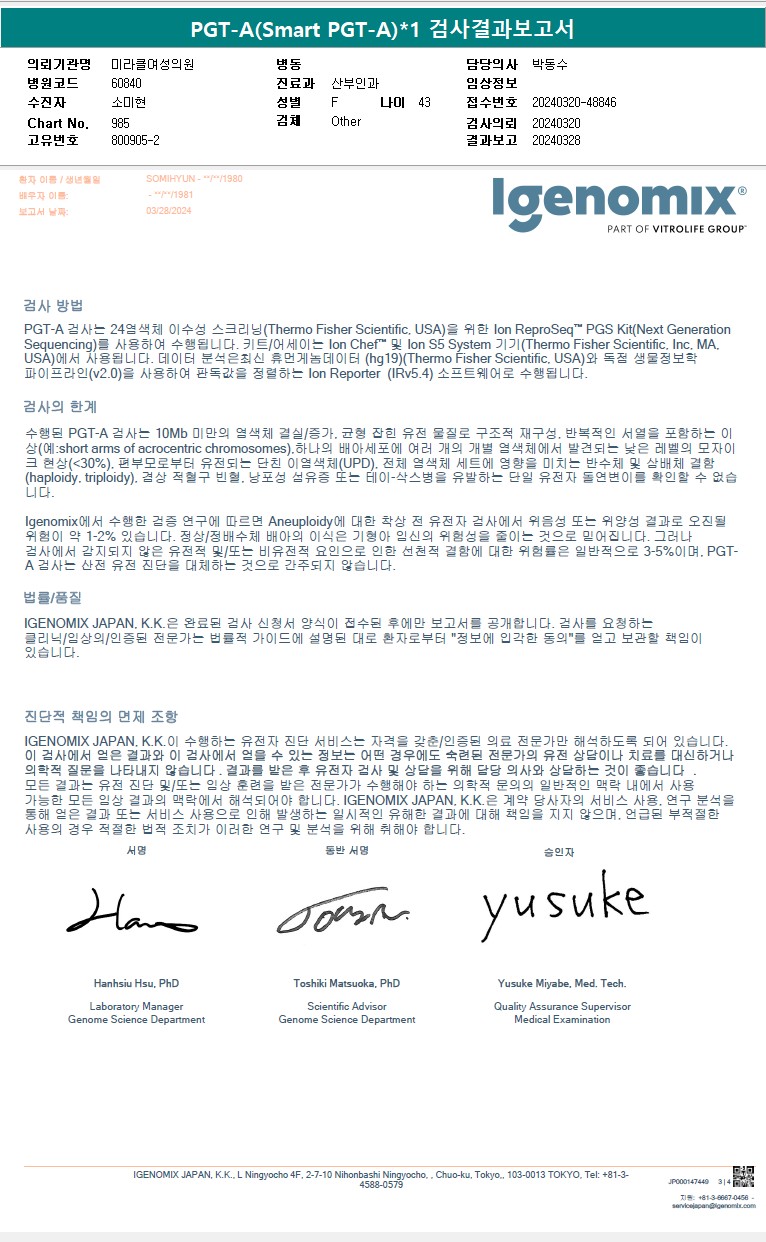 PGT-A(Smart PGT-A)*1 검사결과보고서
의뢰기관명 미라클여성의원 병동 담당의사 박동수
병원코드 60840 진료과 산부인과 임상정보
수진자 소미현 성별 F 나이 43 접수번호 20240320-48846
Chart No. 985 검체 Other 검사의뢰 20240320
고유번호 800905-2 결과보고 20240328
환자 이름 / 생년월일 SOMIHYUN - **/**/1980
배우자 이름: - **/**/1981
보고서 날짜: 03/28/2024
Igenomix®
PART OF VITROLIFE GROUP™
검사 방법
PGT-A 검사는 24염색체 이수성 스크리닝(Thermo Fisher Scientific, USA)을 위한 Ion ReproSeq™ PGS Kit(Next Generation
Sequencing)를 사용하여 수행됩니다. 키트/어세이는 Ion Chef™ 및 Ion S5 System 기기(Thermo Fisher Scientific, Inc, MA,
USA)에서 사용됩니다. 데이터 분석은최신 휴먼게놈데이터 (hg19)(Thermo Fisher Scientific, USA)와 독점 생물정보학
파이프라인(v2.0)을 사용하여 판독값을 정렬하는 Ion Reporter (IRv5.4) 소프트웨어로 수행됩니다.
검사의 한계
수행된 PGT-A 검사는 10Mb 미만의 염색체 결실/증가, 균형 잡힌 유전 물질로 구조적 재구성, 반복적인 서열을 포함하는 이
상(예:short arms of acrocentric chromosomes),하나의 배아세포에 여러 개의 개별 염색체에서 발견되는 낮은 레벨의 모자이
크 현상(<30%), 편부모로부터 유전되는 단친 이염색체(UPD), 전체 염색체 세트에 영향을 미치는 반수체 및 삼배체 결함
(haploidy, triploidy), 겸상 적혈구 빈혈, 낭포성 섬유증 또는 테이-삭스병을 유발하는 단일 유전자 돌연변이를 확인할 수 없습
니다.
Igenomix에서 수행한 검증 연구에 따르면 Aneuploidy에 대한 착상 전 유전자 검사에서 위음성 또는 위양성 결과로 오진될
위험이 약 1-2% 있습니다. 정상/정배수체 배아의 이식은 기형아 임신의 위험성을 줄이는 것으로 믿어집니다. 그러나
검사에서 감지되지 않은 유전적 및/또는 비유전적 요인으로 인한 선천적 결함에 대한 위험률은 일반적으로 3-5%이며, PGT-
A 검사는 산전 유전 진단을 대체하는 것으로 간주되지 않습니다.
법률/품질
IGENOMIX JAPAN, K.K.은 완료된 검사 신청서 양식이 접수된 후에만 보고서를 공개합니다. 검사를 요청하는
클리닉/임상의/인증된 전문가는 법률적 가이드에 설명된 대로 환자로부터 "정보에 입각한 동의"를 얻고 보관할 책임이
있습니다.
진단적 책임의 면제 조항
IGENOMIX JAPAN, K.K.이 수행하는 유전자 진단 서비스는 자격을 갖춘/인증된 의료 전문가만 해석하도록 되어 있습니다.
이 검사에서 얻은 결과와 이 검사에서 얻을 수 있는 정보는 어떤 경우에도 숙련된 전문가의 유전 상담이나 치료를 대신하거나
의학적 질문을 나타내지 않습니다 . 결과를 받은 후 유전자 검사 및 상담을 위해 담당 의사와 상담하는 것이 좋습니다 .
모든 결과는 유전 진단 및/또는 임상 훈련을 받은 전문가가 수행해야 하는 의학적 문의의 일반적인 맥락 내에서 사용
가능한 모든 임상 결과의 맥락에서 해석되어야 합니다. IGENOMIX JAPAN, K.K.은 계약 당사자의 서비스 사용, 연구 분석을
통해 얻은 결과 또는 서비스 사용으로 인해 발생하는 일시적인 유해한 결과에 대해 책임을 지지 않으며, 언급된 부적절한
사용의 경우 적절한 법적 조치가 이러한 연구 및 분석을 위해 취해야 합니다.
서명 동반 서명 승인자
yusuke
Hanhsiu Hsu, PhD Toshiki Matsuoka, PhD Yusuke Miyabe, Med. Tech.
Laboratory Manager Scientific Advisor Quality Assurance Supervisor
Genome Science Department Genome Science Department Medical Examination
IGENOMIX JAPAN, K.K., L Ningyocho 4F, 2-7-10 Nihonbashi Ningyocho, , Chuo-ku, Tokyo,, 103-0013 TOKYO, Tel: +81-3-
4588-0579
JP000147449 3 | 4
지원: +81-3-6667-0456 -
servicejapan@igenomix.com